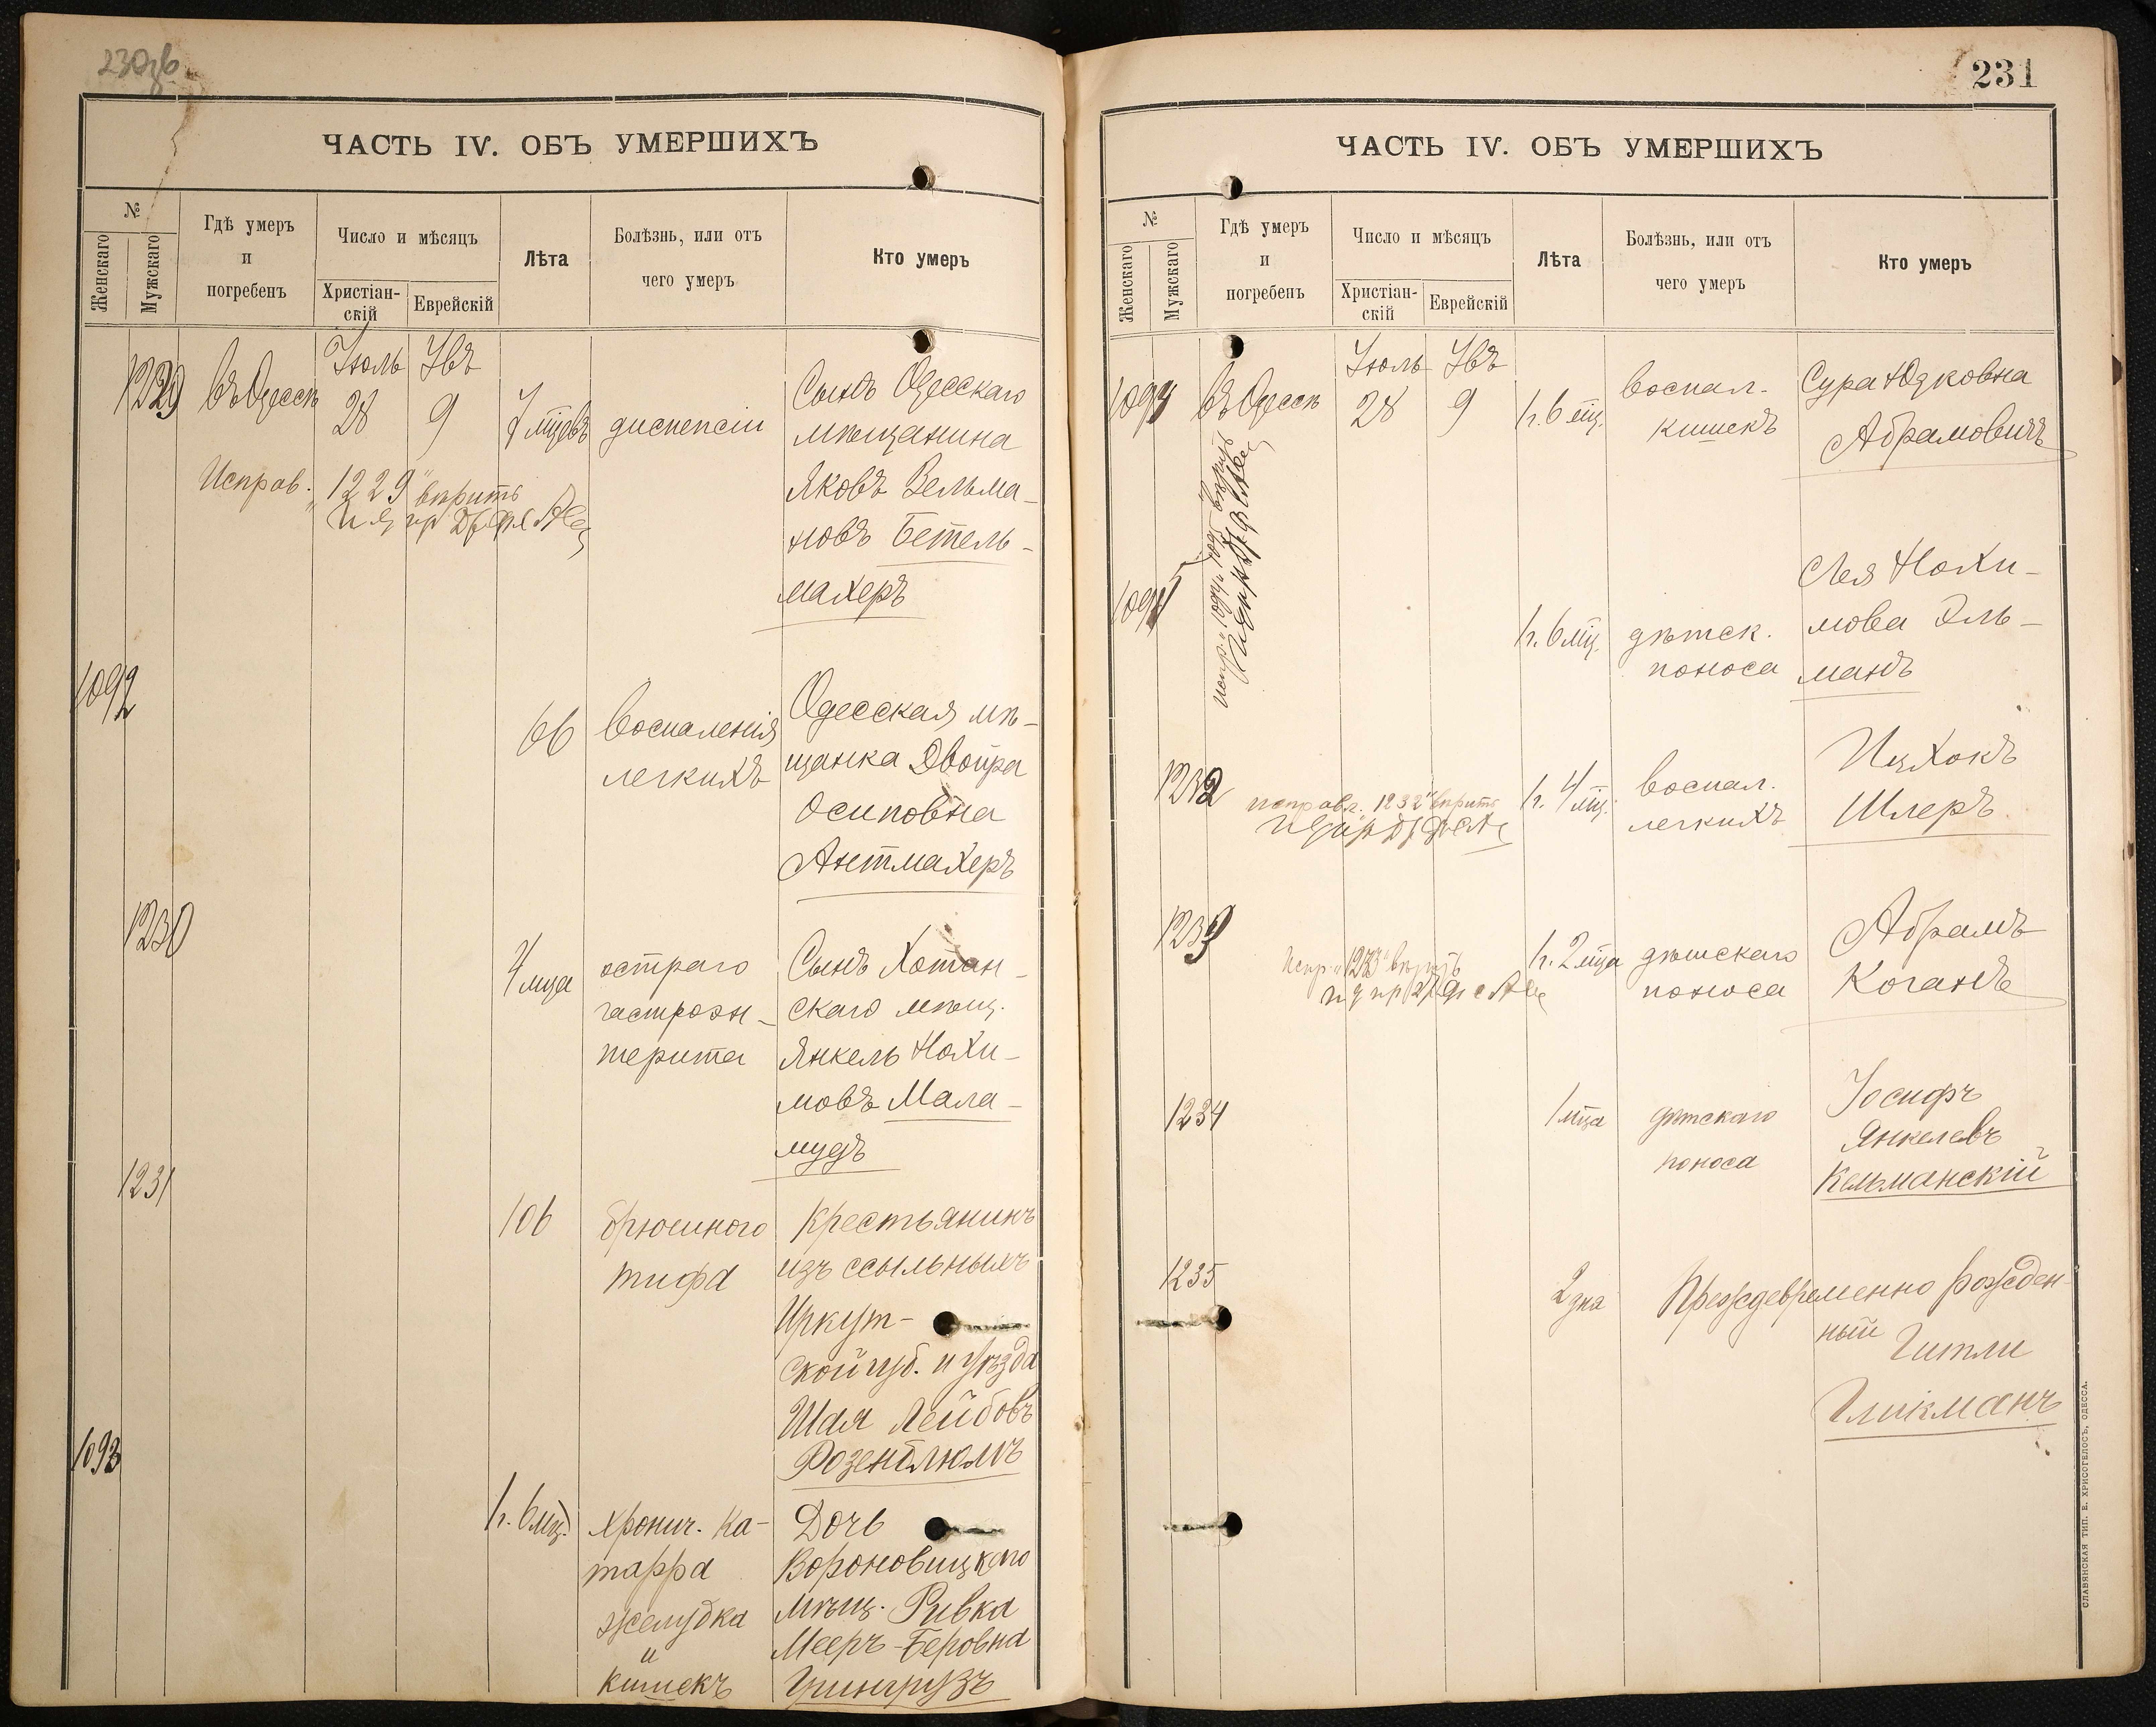 230 об
ЧАСТЬ IV. ОБЪ УМЕРШИХЪ
№
Женскаго
Мужскаго
Гдѣ умеръ
и
погребенъ
Число и мѣсяцъ
Христіан-
скій
Еврейскій
Лѣта
Болѣзнь, или отъ
чего умеръ
Кто умеръ
Іюль
1229 въ Одессѣ 28 9 7 мцевъ диспепсіи
Сынъ Одесскаго
мѣщанина
Яковъ Зельма-
новъ Бетель-
махеръ
Исправ. „1229" вѣрить
1092
66 воспаленія
легкихъ
Одесская мѣ-
щанка Двойра
Осиповна
Антмахеръ
1230
4 мца остраго
гастроэн-
терита
Сынъ Хотин-
скаго мѣщ.
Янкель Нохи-
мовъ Мала-
мудъ
1231
106 брюшного
тифа
Крестьянинъ
изъ ссыльныхъ
Иркут-
ской губ. и уѣзда
Шая Лейбовъ
Розенблюмъ
1093
1 г. 6 мц. хронич. ка-
тарра
желудка
и
кишекъ
Дочь
Вороновицкаго
мѣщ. Ривка
Мееръ-Беровна
231
ЧАСТЬ IV. ОБЪ УМЕРШИХЪ
№
Женскаго
Мужскаго
Гдѣ умеръ
и
погребенъ
Число и мѣсяцъ
Христіан-
скій
Еврейскій
Лѣта
Болѣзнь, или отъ
чего умеръ
Кто умеръ
Іюль
1094 въ Одессѣ 28 9 1 г. 6 мц. воспал.
кишекъ
Сура Юдковна
Абрамовичъ
испр. 1094 1095 вѣрить
1095
1 г. 6 мц. дѣтск.
поноса
Лея Нохи-
мова Эль-
манъ
1232
исправл. „1232" вѣрить
1 г. 4 мц. воспал.
легкихъ
Ицхокъ
Шлеръ
1233
Испр. „1233" вѣрить
1 г. 2 мца дѣтскаго
поноса
Абрамъ
Коганъ
1234
1 мца дѣтскаго
поноса
Іосифъ
Янкелевъ
Кельманскій
1235
2 дня Преждевременно рожден-
ный Гитли
Гликманъ
СЛАВЯНСКАЯ ТИП. Е. ХРИСОГЕЛОСЪ, ОДЕССА.